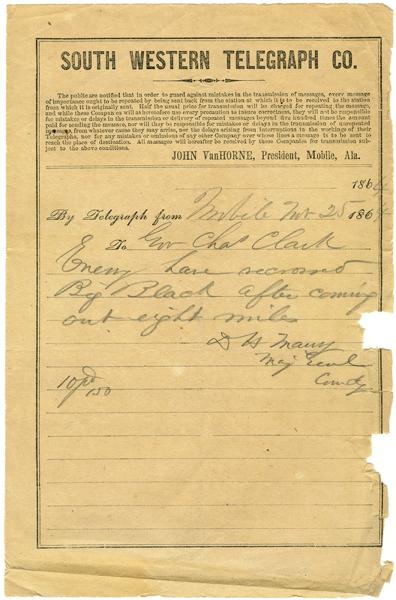 SOUTH WESTERN TELEGRAPH CO.
The public are notified that in order to guard against mistakes in the transmission of messages, every message
of importance ought to be repeated by being sent back from the station at which it is to be received to the station
from which it is originally sent. Half the usual price for transmission will be charged for repeating the message,
and while these Companies will as heretofore use every precaution to insure correctness, they will not be responsible
for mistakes or delays in the transmission or delivery of repeated messages beyond five hundred times the amount
paid for sending the message, nor will they be responsible for mistakes or delays in the transmission of unrepeated
messages, from whatever cause they may arise, nor for delays arising from interruptions in the workings of their
Telegraphs, nor for any mistakes or omissions of any other Company over whose lines a message is to be sent to
reach the place of destination. All messages will hereafter be received by these Companies for transmission sub-
ject to the above conditions.
JOHN VanHORNE, President, Mobile, Ala.
1864
By Telegraph from Mobile Nov 25 1864
To Gov Chas Clark
Enemy have recrossed
Big Black after coming
out eight miles
D H Maury
Maj Genl
Comdg
10 pd 150